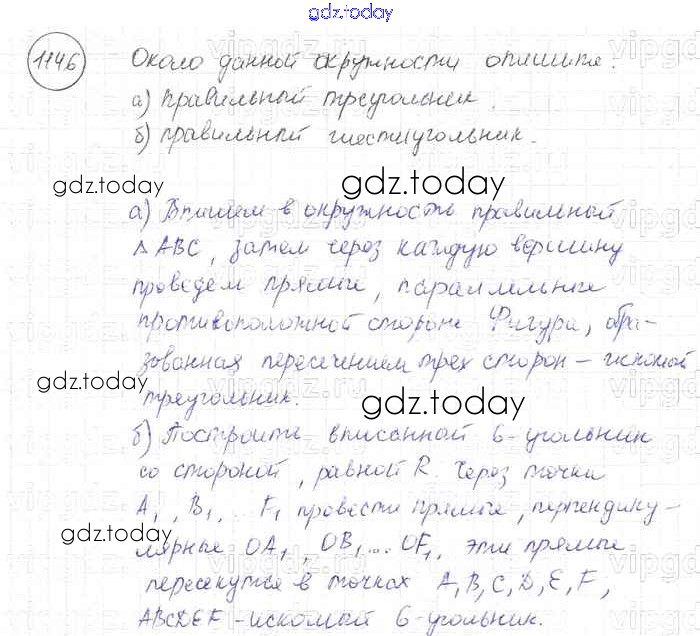 gdz.today
1146 Около данной окружности опишите:
а) правильный треугольник.
б) правильный шестиугольник.
gdz.today gdz.today
а) Впишем в окружность правильный
Δ ABC, затем через каждую вершину
проведем прямые, параллельные
противоположной стороне. Фигура, обра-
зованная пересечением трех сторон – искомый
gdz.today
треугольник.
gdz.today
б) Построить вписанный 6-угольник
со стороной, равной R. Через точки
A₁, B₁, ... F₁ провести прямые, перпендику-
gdz.today
лярные OA₁, OB₁,... OF₁, эти прямые
пересекутся в точках A, B, C, D, E, F,
ABCDEF – искомый 6-угольник.